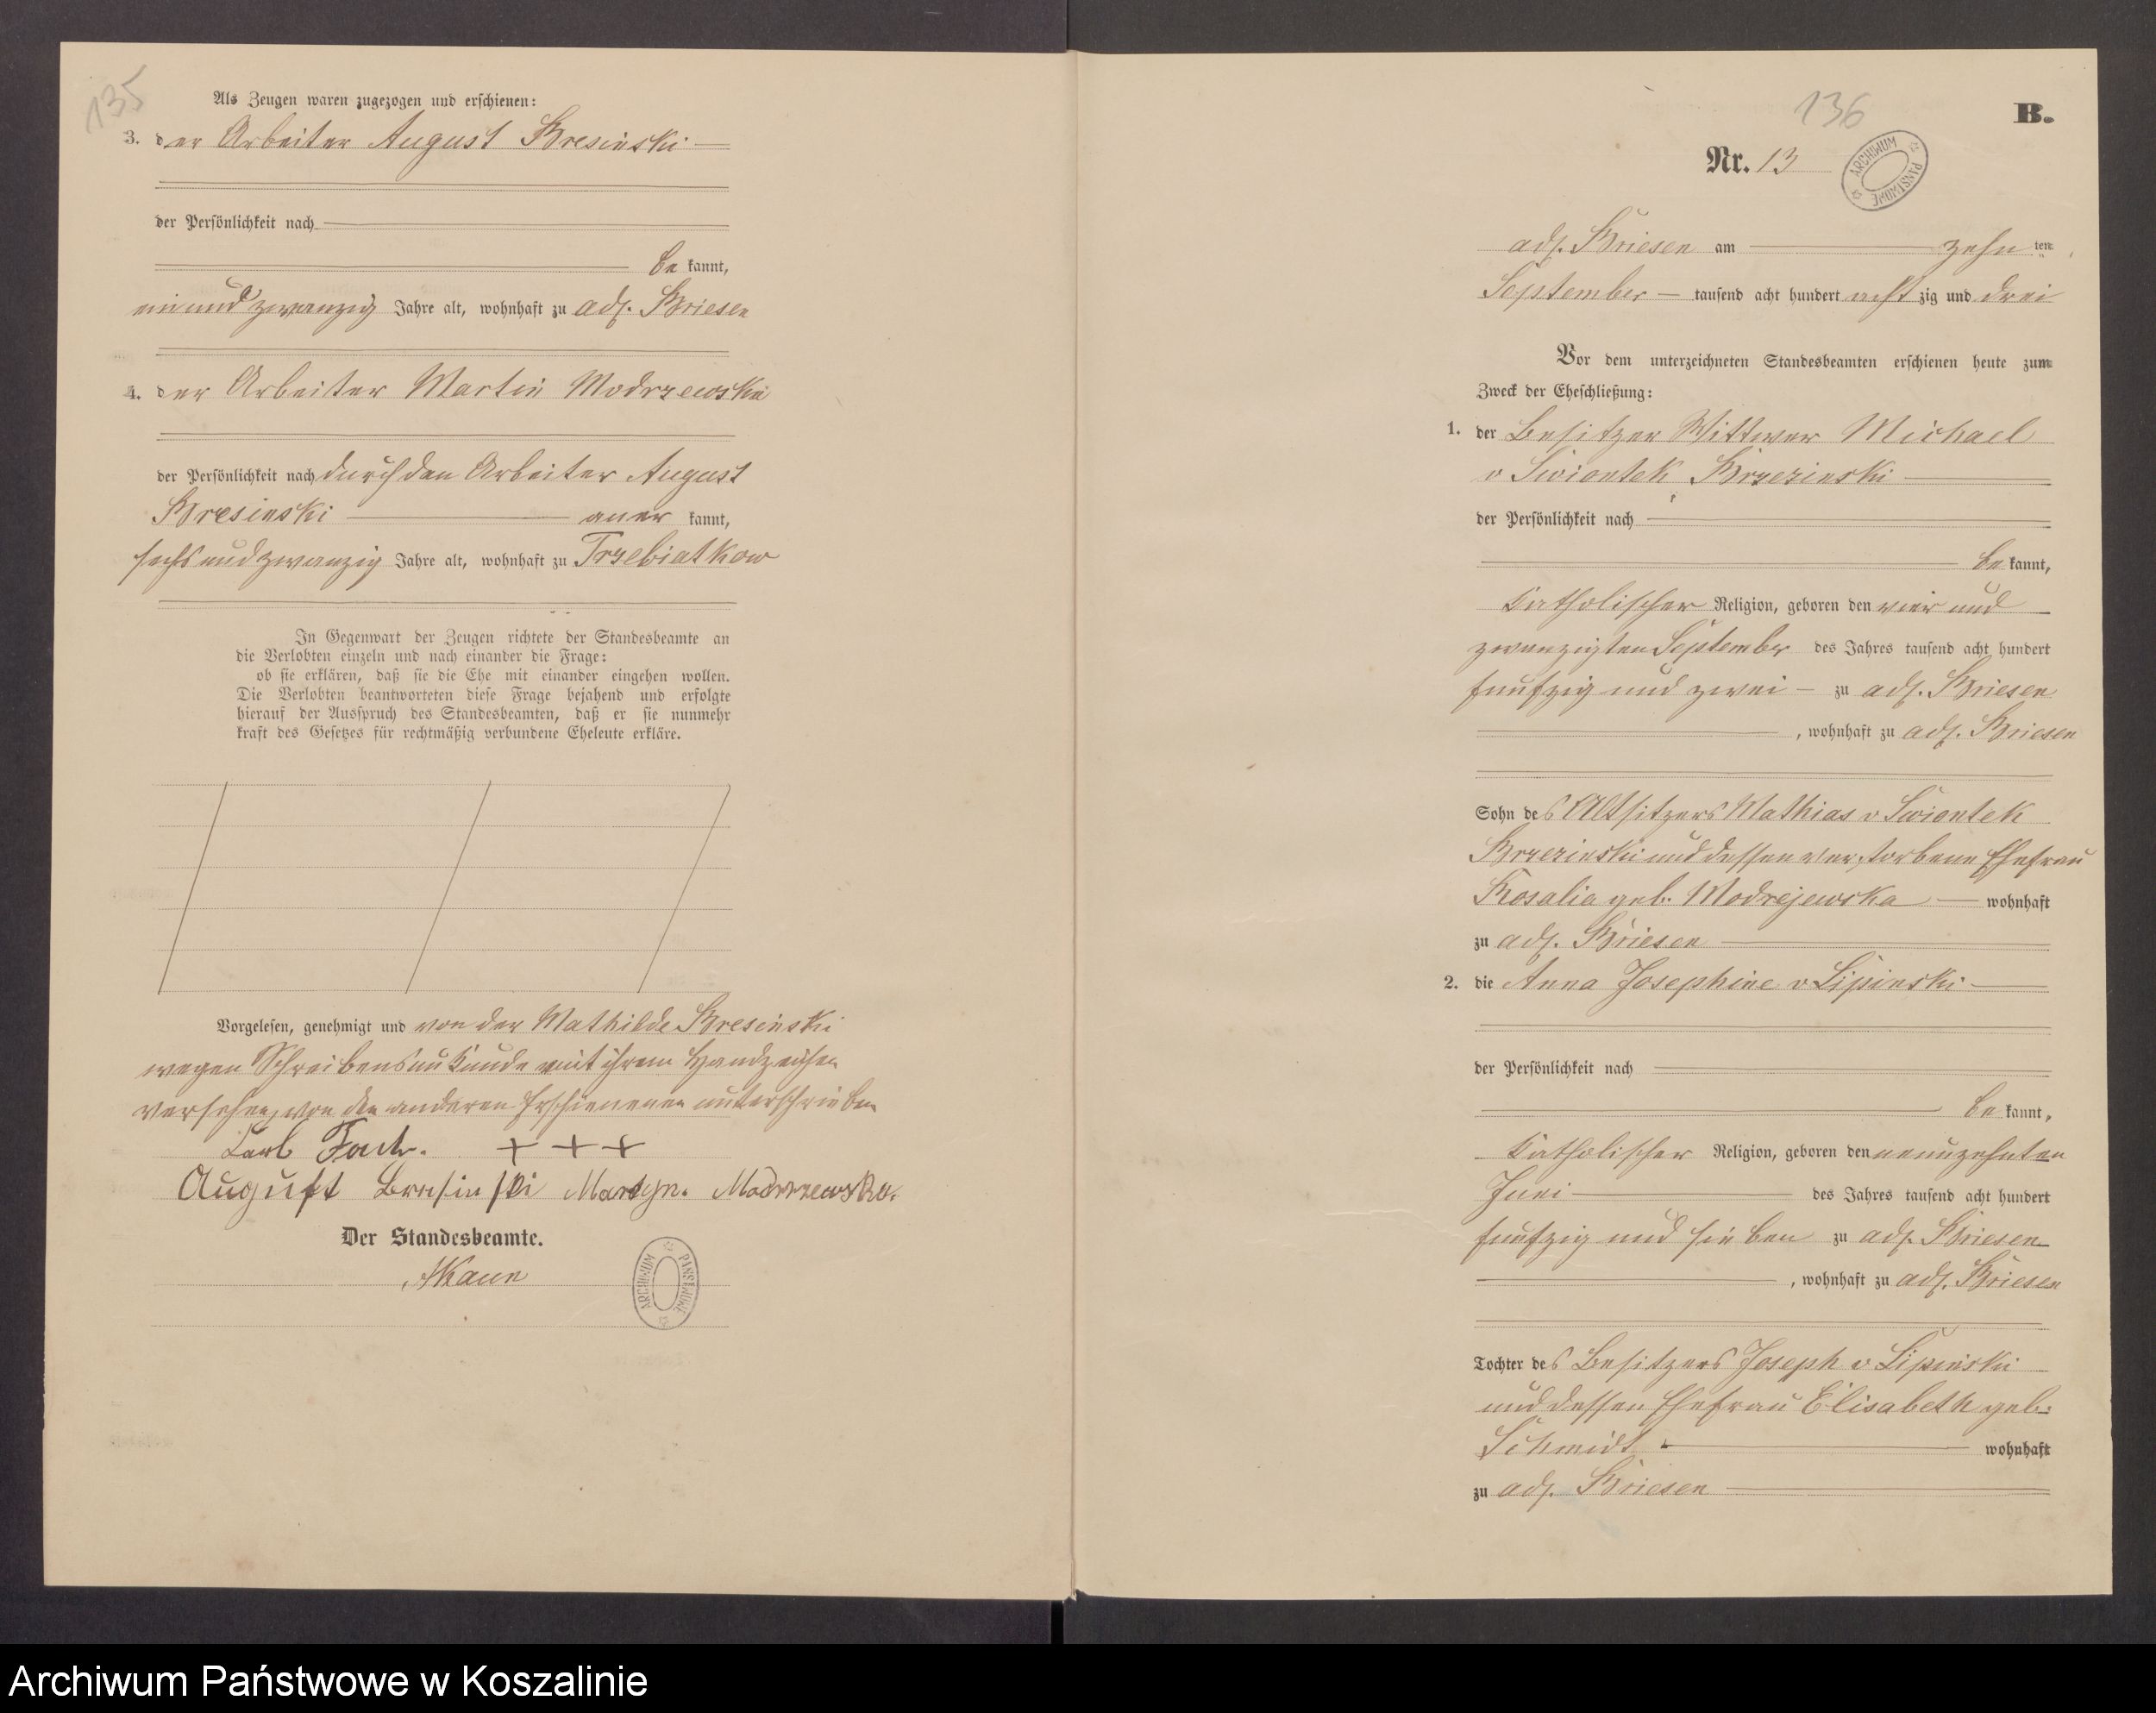 135
Als Zeugen waren zugezogen und erschienen:
3. der Arbeiter August Bresinski
der Persönlichkeit nach
be kannt,
einundzwanzig Jahre alt, wohnhaft zu adl. Briesen
4. der Arbeiter Martin Modrzewski
der Persönlichkeit nach durch den Arbeiter August
Bresinski aner kannt,
sechsundzwanzig Jahre alt, wohnhaft zu Trzebiatkow
In Gegenwart der Zeugen richtete der Standesbeamte an
die Verlobten einzeln und nach einander die Frage:
ob sie erklären, daß sie die Ehe mit einander eingehen wollen.
Die Verlobten beantworteten diese Frage bejahend und erfolgte
hierauf der Ausspruch des Standesbeamten, daß er sie nunmehr
kraft des Gesetzes für rechtmäßig verbundene Eheleute erkläre.
Vorgelesen, genehmigt und von der Mathilde Bresinski
wegen Schreibensunkunde mit ihrem Handzeichen
versehen, von den anderen Erschienenen unterschrieben
Carl + + +
August Bresinski Marcyn. Modrzewski.
Der Standesbeamte.
ARCHIWUM PAŃSTWOWE
136
B.
Nr. 13
ARCHIWUM PAŃSTWOWE
adl. Briesen am zehn ten
September tausend acht hundert acht zig und drei
Vor dem unterzeichneten Standesbeamten erschienen heute zum
Zweck der Eheschließung:
1. der Besitzer Wittwer Michael
v Swiontek Brzezinski
der Persönlichkeit nach
be kannt,
katholischer Religion, geboren den vier und
zwanzigten September des Jahres tausend acht hundert
funfzig und zwei zu adl. Briesen
, wohnhaft zu adl. Briesen
Sohn des Altsitzers Mathias v Swiontek
Brzezinski und dessen verstorbene Ehefrau
Rosalia geb. Modrejewska wohnhaft
zu adl. Briesen
2. die Anna Josephine v Lipinski
der Persönlichkeit nach
be kannt,
katholischer Religion, geboren den neunzehnten
Juni des Jahres tausend acht hundert
funfzig und sieben zu adl. Briesen
, wohnhaft zu adl. Briesen
Tochter des Besitzers Joseph v Lipinski
und dessen Ehefrau Elisabeth geb.
Schmidt wohnhaft
zu adl. Briesen
Archiwum Państwowe w Koszalinie